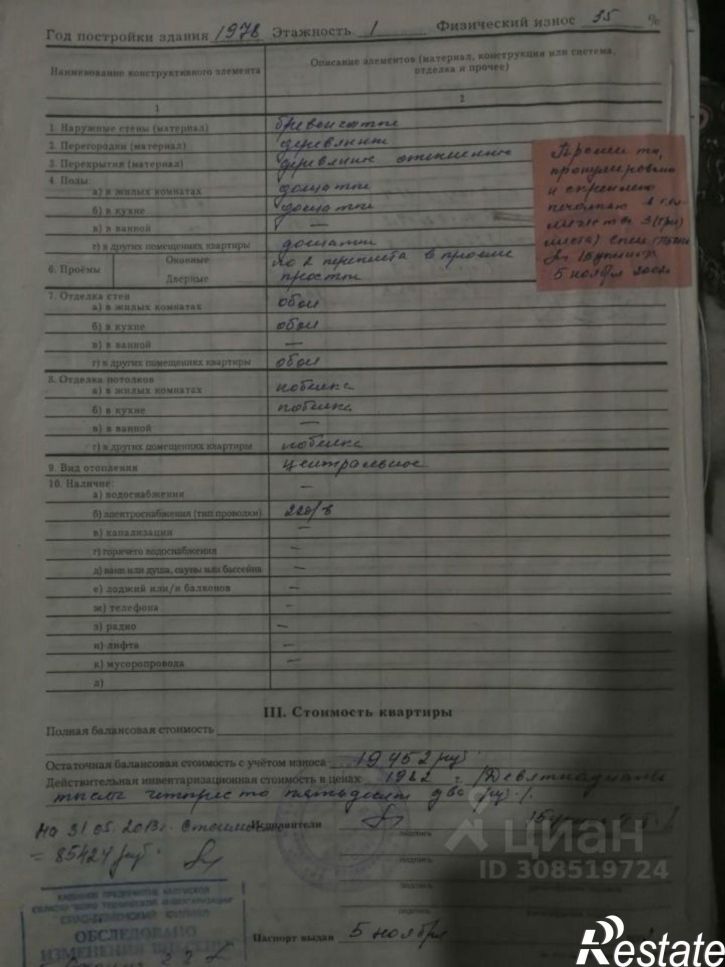 Год постройки здания 1978 Этажность 1 Физический износ 35 %
Наименование конструктивного элемента
Описание элементов (материал, конструкция или система, отделка и прочее)
1
2
1. Наружные стены (материал) бревенчатые
2. Перегородки (материал) деревянные
3. Перекрытия (материал) деревянные отепленные
4. Полы:
а) в жилых комнатах дощатые
б) в кухне дощатые
в) в ванной —
г) в других помещениях квартиры дощатые
6. Проёмы Оконные по 2 переплета в проеме
Дверные простые
7. Отделка стен
а) в жилых комнатах обои
б) в кухне обои
в) в ванной —
г) в других помещениях квартиры обои
8. Отделка потолков
а) в жилых комнатах побелка
б) в кухне побелка
в) в ванной —
г) в других помещениях квартиры побелка
9. Вид отопления центральное
10. Наличие:
а) водоснабжения —
б) электроснабжения (тип проводки) 220/в
в) канализации —
г) горячего водоснабжения —
д) ванн или душа, сауны или бассейна —
е) лоджий или/и балконов —
ж) телефона —
з) радио —
и) лифта —
к) мусоропровода —
л)
пронумеровано
и скреплено
печатью в кол-
листа)
5 ноября 2002г
III. Стоимость квартиры
Полная балансовая стоимость
Остаточная балансовая стоимость с учётом износа 19452 руб.
Действительная инвентаризационная стоимость в ценах г. /Девятнадцать
тысяч четыреста пятьдесят два руб./.
Исполнители
подпись
На 31.05.2013г. Стоимость
= 85424 руб.
подпись
подпись
подпись
ОБСЛЕДОВАНО
ИЗМЕНЕНИЯ
Паспорт выдан 5 ноября
циан
ID 308519724
Restate